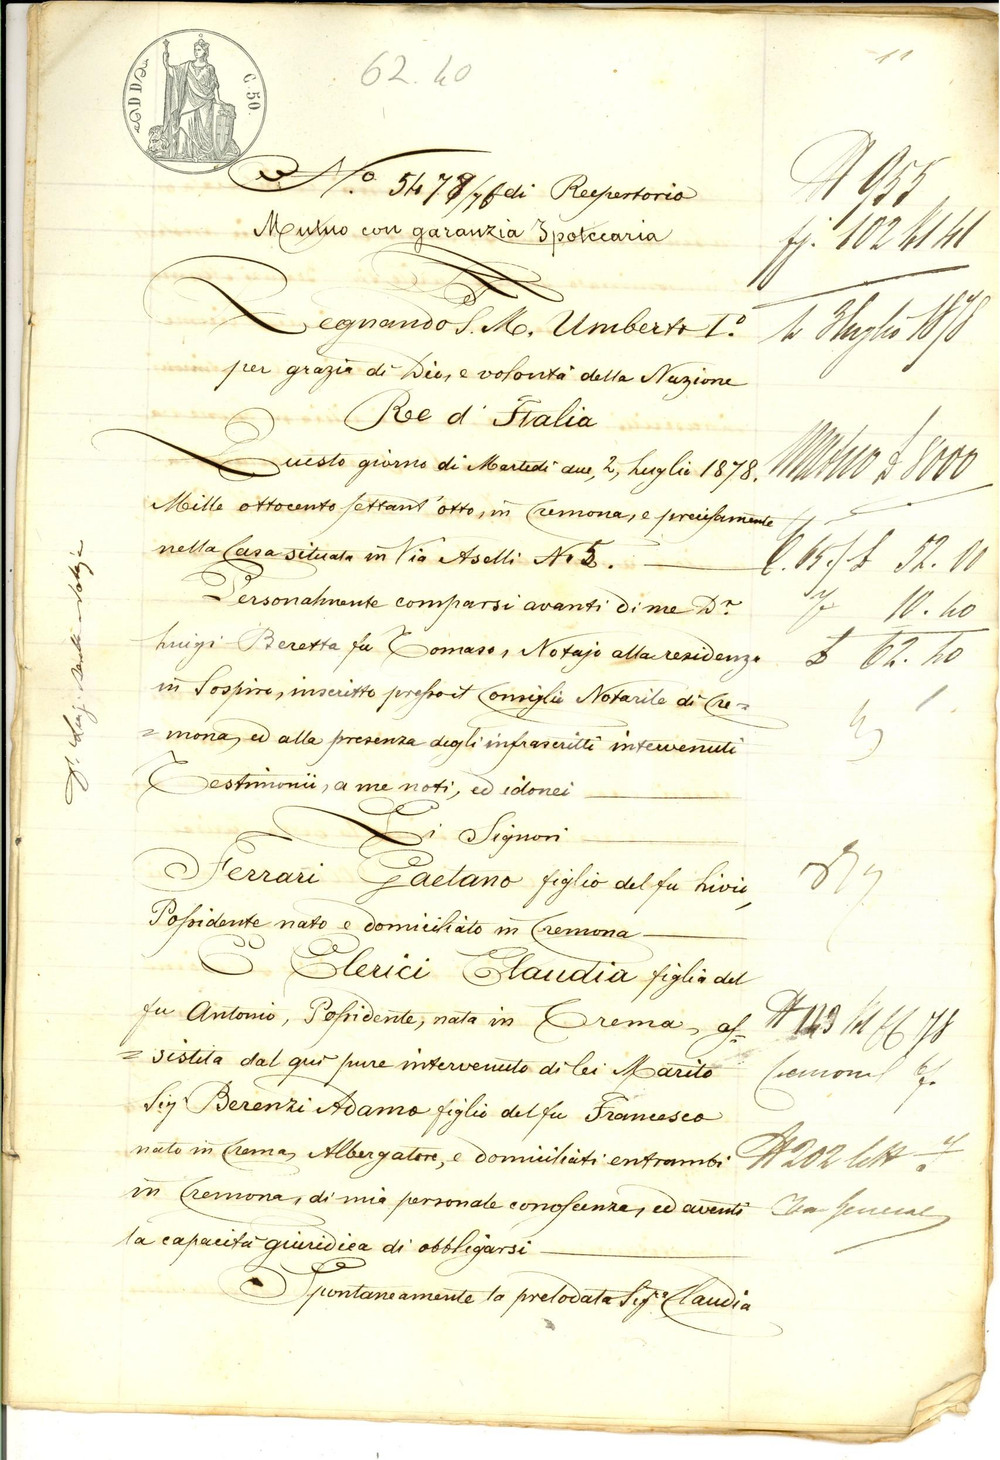 62.40
C. 50.
N.o 5478/76 di Repertorio
Mutuo con garanzia Ipotecaria
Regnando S. M. Umberto I.o
per grazia di Dio, e volontà della Nazione
Re d'Italia
Questo giorno di Martedì due, 2, Luglio 1878.
Mille ottocento settant'otto, in Cremona, e precisamente
nella Casa situata in Via Aselli No 5.
Personalmente comparsi avanti di me Dr.
Luigi Beretta fu Tomaso, Notajo alla residenza
in Sospiro, inscritto presso il Consiglio Notarile di Cre=
=mona, ed alla presenza degli infrascritti intervenuti
Testimonii, a me noti, ed idonei
Li Signori
Ferrari Gaetano figlio del fu Livio,
Possidente nato e domiciliato in Cremona
E Clerici Claudia figlia del
fu Antonio, Possidente, nata in Crema, as=
=sistita dal quì pure intervenuto di lei Marito
Sig. Berenzi Adamo figlio del fu Francesco
nato in Crema, Albergatore, e domiciliati entrambi
in Cremona, di mia personale conoscenza, ed aventi
la capacità giuridica di obbligarsi
Spontaneamente la prelodata Sig.ra Claudia
N 955
fg. 102
li 3 Luglio 1878
Mutuo £ 8000
52.00
10.40
£ 62.40
N 143 78
Cremona
N 202